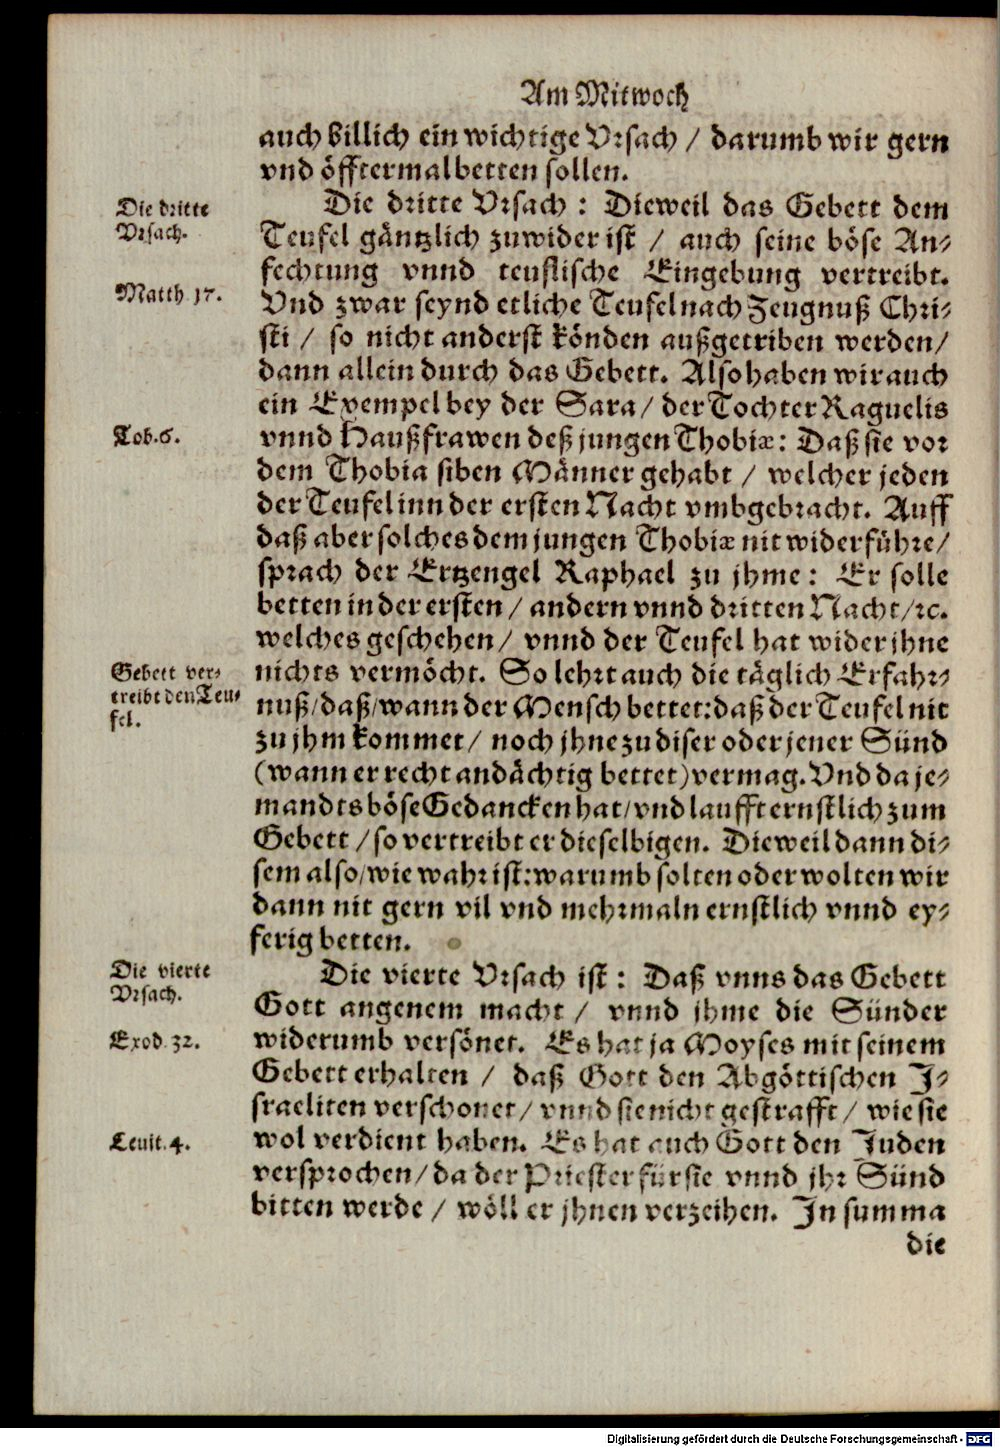 Am Mitwoch
auch billich ein wichtige Vrsach / darumb wir gern
vnd öfftermal betten sollen.
Die dritte
Vrsach.
Die dritte Vrsach : Dieweil das Gebett dem
Teufel gäntzlich zuwider ist / auch seine böse An-
fechtung vnnd teuflische Eingebung vertreibt.
Matth. 17.
Vnd zwar seynd etliche Teufel nach Zeugnuß Chri-
sti / so nicht anderst könden außgetriben werden/
dann allein durch das Gebett. Also haben wir auch
ein Exempel bey der Sara / der Tochter Raguelis
Tob. 6.
vnnd Haußfrawen deß jungen Thobiæ: Daß sie vor
dem Thobia siben Männer gehabt / welcher jeden
der Teufel inn der ersten Nacht vmbgebracht. Auff
daß aber solches dem jungen Thobiæ nit widerführe/
sprach der Ertzengel Raphael zu jhme: Er solle
betten in der ersten / andern vnnd dritten Nacht/ꝛc.
welches geschehen / vnnd der Teufel hat wider jhne
Gebett ver-
treibt den Teu-
fel.
nichts vermöcht. So lehrt auch die täglich Erfahr-
nuß/daß/wann der Mensch bettet:daß der Teufel nit
zu jhm kommet / noch jhne zu diser oder jener Sünd
(wann er recht andächtig bettet)vermag.Vnd da je-
mandts böse Gedancken hat/vnd laufft ernstlich zum
Gebett / so vertreibt er dieselbigen. Dieweil dann di-
sem also/wie wahr ist:warumb solten oder wolten wir
dann nit gern vil vnd mehrmaln ernstlich vnnd ey-
ferig betten.
Die vierte
Vrsach.
Die vierte Vrsach ist : Daß vnns das Gebett
Gott angenem macht / vnnd jhme die Sünder
Exod. 32.
widerumb versönet. Es hat ja Moyses mit seinem
Gebett erhalten / daß Gott den Abgöttischen J-
sraeliten verschonet / vnnd sie nicht gestrafft / wie sie
Leuit. 4.
wol verdient haben. Es hat auch Gott den Juden
versprochen / da der Priester für sie vnnd jhr Sünd
bitten werde / wöll er jhnen verzeihen. Jn summa
die
Digitalisierung gefördert durch die Deutsche Forschungsgemeinschaft - DFG